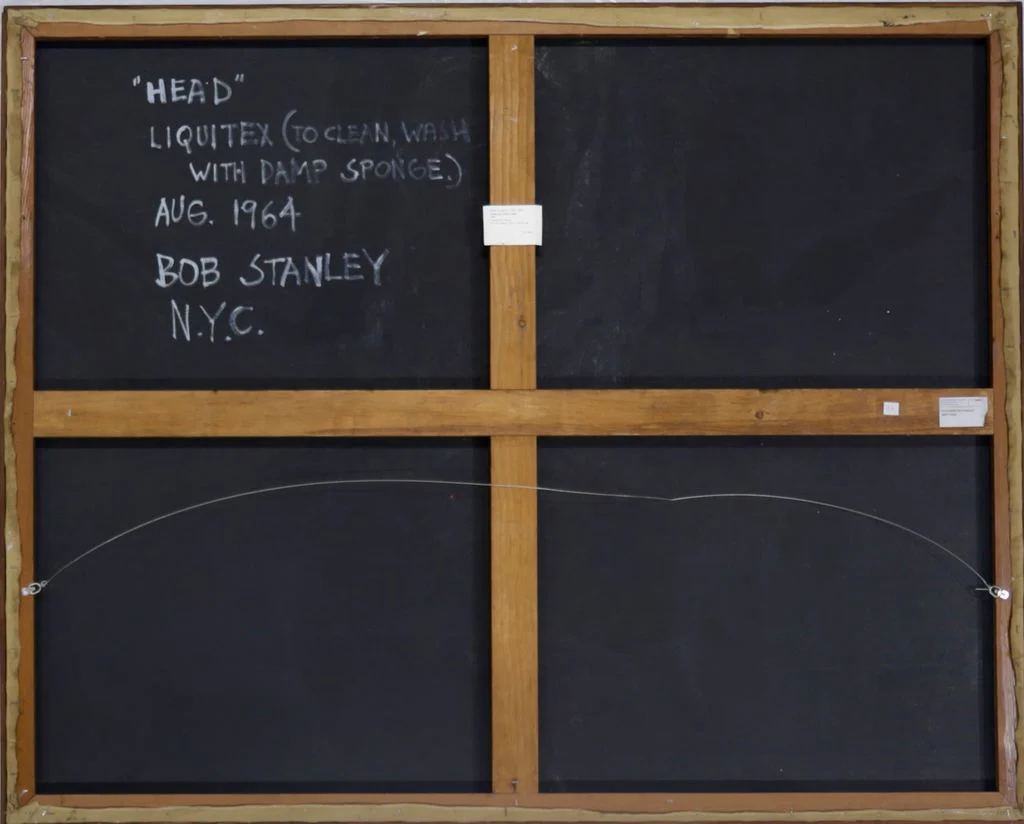 "HEAD"
LIQUITEX (TO CLEAN, WASH
WITH DAMP SPONGE.)
AUG. 1964
BOB STANLEY
N.Y.C.